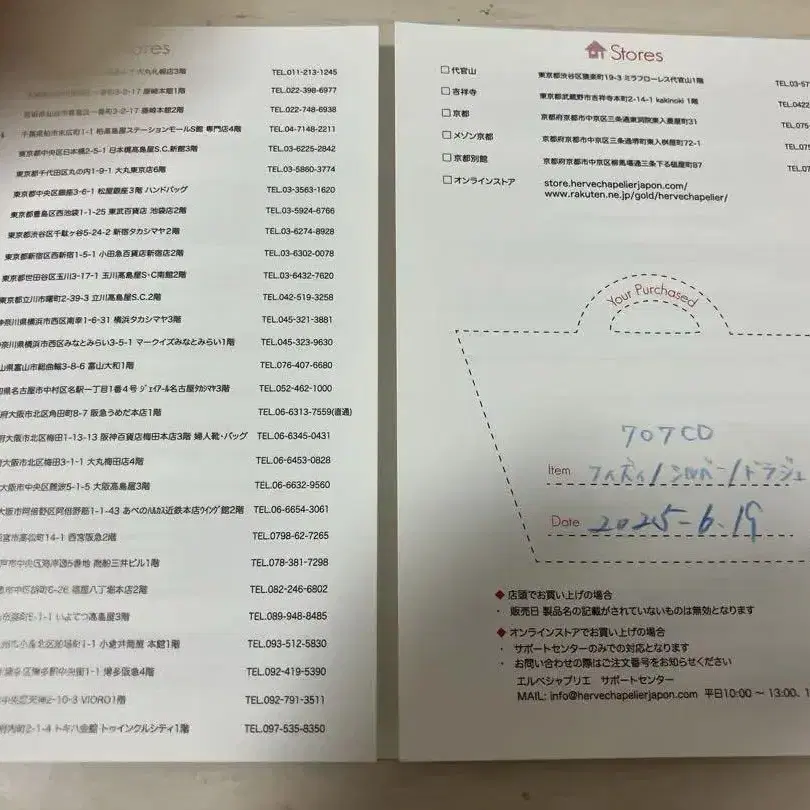 Stores
大丸札幌店3階 TEL.011-213-1245
宮城県仙台市青葉区一番町3-2-17 藤崎本館1階 TEL.022-398-6977
宮城県仙台市青葉区一番町3-2-17 藤崎本館2階 TEL.022-748-6938
千葉県柏市末広町1-1 柏高島屋ステーションモールS館 専門店4階 TEL.04-7148-2211
東京都中央区日本橋2-5-1 日本橋高島屋S.C.新館3階 TEL.03-6225-2842
東京都千代田区丸の内1-9-1 大丸東京店6階 TEL.03-5860-3774
東京都中央区銀座3-6-1 松屋銀座3階 ハンドバッグ TEL.03-3563-1620
東京都豊島区西池袋1-1-25 東武百貨店 池袋店2階 TEL.03-5924-6766
東京都渋谷区千駄ヶ谷5-24-2 新宿タカシマヤ2階 TEL.03-6274-8928
東京都新宿区西新宿1-5-1 小田急百貨店新宿店2階 TEL.03-6302-0078
東京都世田谷区玉川3-17-1 玉川高島屋S・C南館2階 TEL.03-6432-7620
東京都立川市曙町2-39-3 立川高島屋S.C.2階 TEL.042-519-3258
神奈川県横浜市西区南幸1-6-31 横浜タカシマヤ3階 TEL.045-321-3881
神奈川県横浜市西区みなとみらい3-5-1 マークイズみなとみらい1階 TEL.045-323-9630
山県富山市総曲輪3-8-6 富山大和1階 TEL.076-407-6680
知県名古屋市中村区名駅一丁目1番4号 ジェイアール名古屋タカシマヤ3階 TEL.052-462-1000
府大阪市北区角田町8-7 阪急うめだ本店1階 TEL.06-6313-7559(直通)
府大阪市北区梅田1-13-13 阪神百貨店梅田本店3階 婦人靴・バッグ TEL.06-6345-0431
大阪市北区梅田3-1-1 大丸梅田店4階 TEL.06-6453-0828
大阪市中央区難波5-1-5 大阪高島屋3階 TEL.06-6632-9560
大阪市阿倍野区阿倍野筋1-1-43 あべのハルカス近鉄本店ウイング館2階 TEL.06-6654-3061
宮市高松町14-1 西宮阪急2階 TEL.0798-62-7265
戸市中央区海岸通5番地 商船三井ビル1階 TEL.078-381-7298
市中区胡町6-26 福屋八丁堀本店2階 TEL.082-246-6802
5-1-1 いよてつ高島屋3階 TEL.089-948-8485
州市小倉北区船場町1-1 小倉井筒屋 本館1階 TEL.093-512-5830
博多区博多駅中央街1-1 博多阪急4階 TEL.092-419-5390
中央区天神2-10-3 VIORO1階 TEL.092-791-3511
府内町2-1-4 トキハ会館 トゥインクルシティ1階 TEL.097-535-8350
Stores
代官山 東京都渋谷区猿楽町19-3 ミラフローレス代官山1階 TEL.03-57
吉祥寺 東京都武蔵野市吉祥寺本町2-14-1 kakinoki 1階 TEL.0422
京都 京都府京都市中京区三条通東洞院東入菱屋町31 TEL.075
メゾン京都 京都府京都市中京区三条通堺町東入桝屋町72-1 TEL.075
京都別館 京都府京都市中京区柳馬場通三条下る槌屋町87 TEL.07
オンラインストア store.hervechapelierjapon.com/
www.rakuten.ne.jp/gold/hervechapelier/
Your Purchased
707CD
Item フィズィ/シルバー/ドラジェ
Date 2025-6.19
◆ 店頭でお買い上げの場合
・ 販売日 製品名の記載がされていないものは無効となります
◆ オンラインストアでお買い上げの場合
・ サポートセンターのみでの対応となります
・ お問い合わせの際はご注文番号をお知らせください
エルベシャプリエ サポートセンター
MAIL: info@hervechapelierjapon.com 平日10:00 ～ 13:00、1